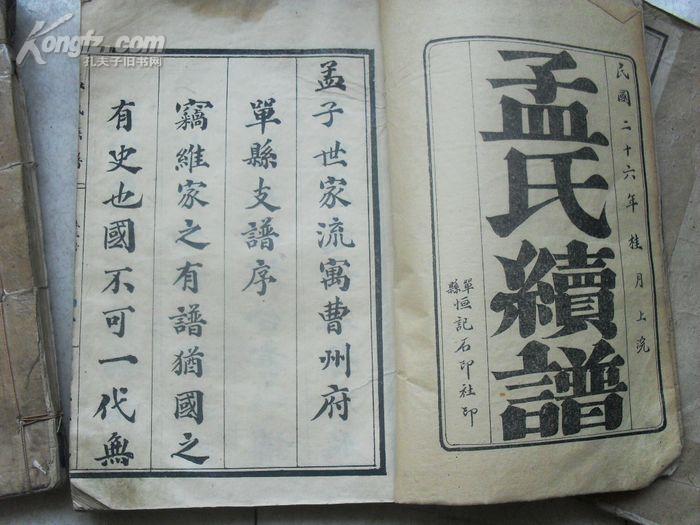 民國二十六年桂月上浣
孟氏續譜
單縣恒記石印社印
孟子世家流寓曹州府
單縣支譜序
竊維家之有譜猶國之
有史也國不可一代無
Kongfz.com
孔夫子旧书网